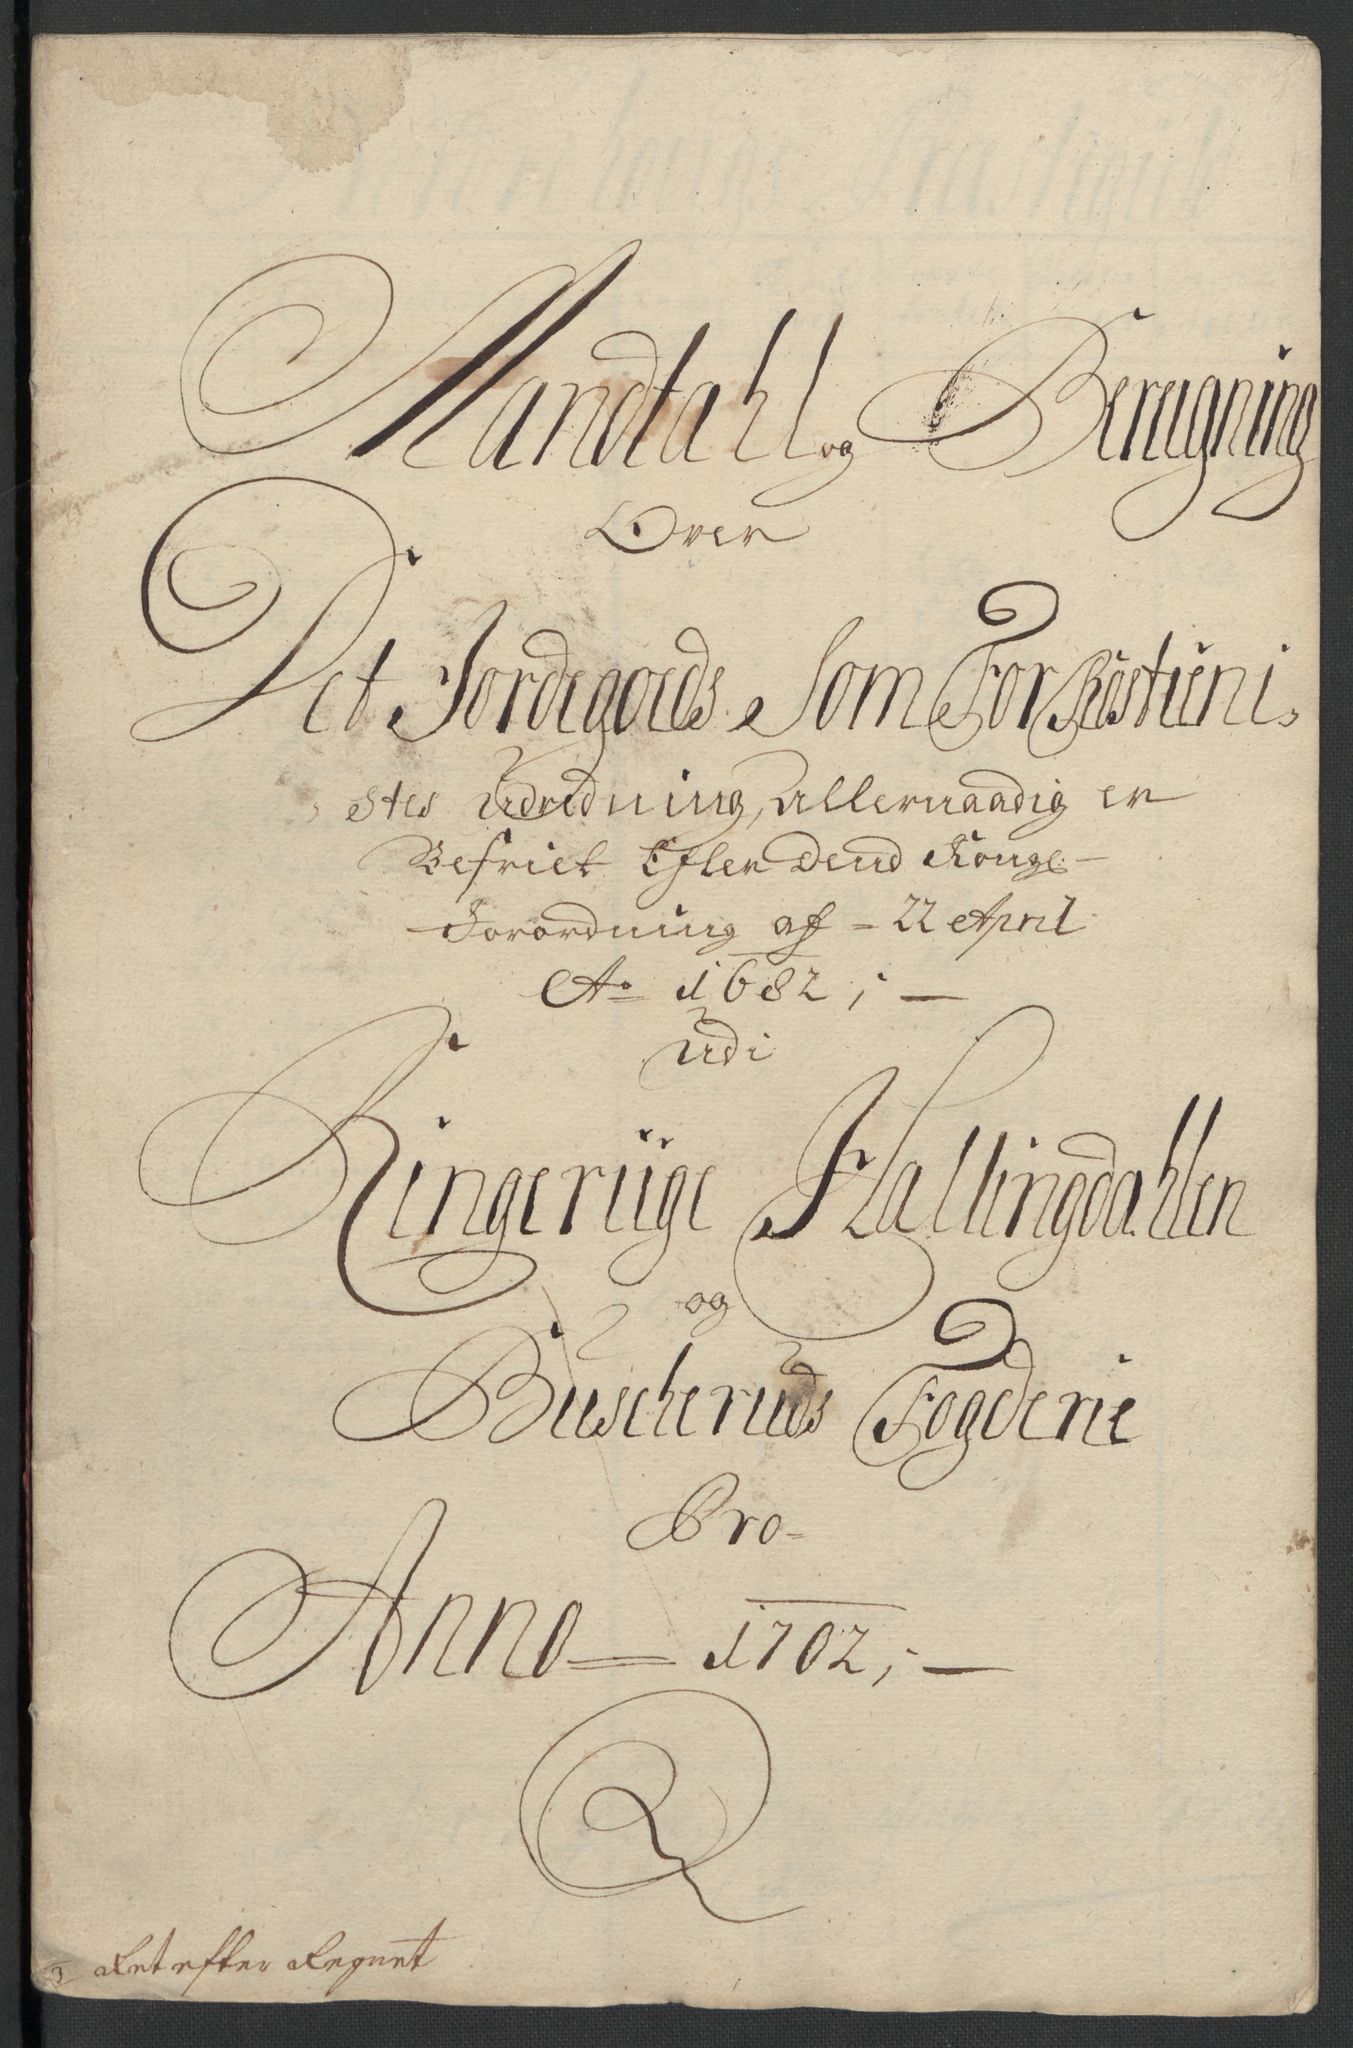 Mandtahl og Bereigning
Over
Det Jordegoeds Som For Rostieni-
stes Udredning, allernaadig er
Befriet Efter Dend Konge
Forordning af 22 April
Ao 1682;
Udi
Ringeriige Hallingdahlen
og
Buscheruds Fogderie
Pro
Anno 1702;
Ret efter Regnet